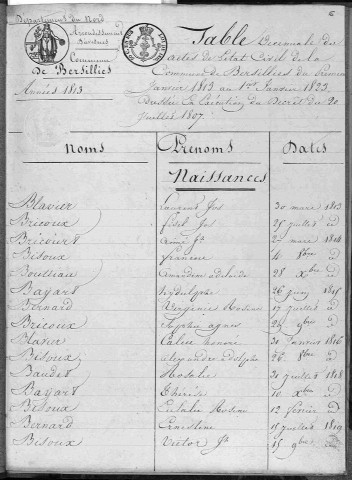 Département du Nord
Arrondissement
Commune
De Bersillies
Années 1813
6
Table Décennale des
actes de l'état Civil de la
Commune de Bersillies du Premier
Janvier 1813 au 1er Janvier 1823
Dressée en Exécution du Décret du 20
Juillet 1807
Noms Prénoms Dates
Naissances
Blavier Laurent Jos 30 mars 1813
Bricoux Jos 25 juillet id
Bricourt aimé 27 mars 1814
Bisoux francoise 4 8bre id
Boulseau amandine adelaide 28 Xbre id
Bayart 26 juin 1815
Bernard Rosine 17 juillet id
Bricoux Sophie agnes 24 9bre id
Blasier honoré 30 Janvier 1816
Bisoux alexandre adolphe 26 8bre id
Baudet Rosalie 20 juillet 1818
Bayart 10 Xbre id
Bisoux Eulalie Rosine 12 février id
Bernard Ernestine 15 juillet 1819
Bisoux Victor Jh 15 9bre id